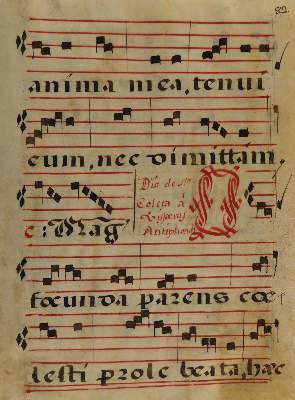 82.
anima mea, tenui
eum, nec dimittam,
e: Mag̃
Dia de Sta
Coleta a
Visperas
Antiphona
O
fœcunda parens cœ
lesti prole beata, hæc